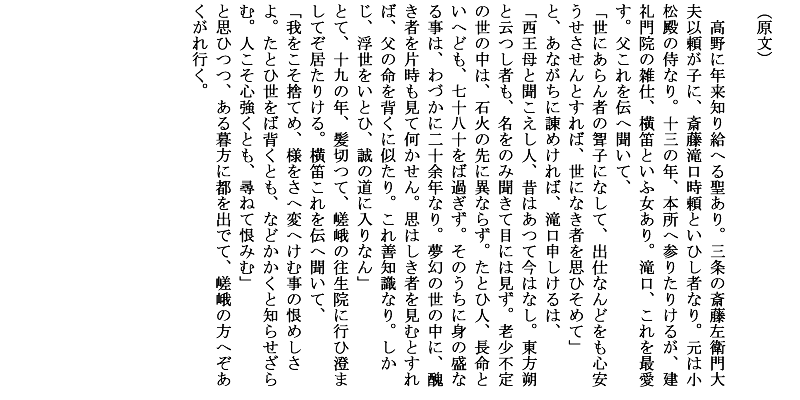 （原文）
　高野に年来知り給へる聖あり。三条の斎藤左衛門大
夫以頼が子に、斎藤滝口時頼といひし者なり。元は小
松殿の侍なり。十三の年、本所へ参りたりけるが、建
礼門院の雑仕、横笛といふ女あり。滝口、これを最愛
す。父これを伝へ聞いて、
「世にあらん者の聟子になして、出仕なんどをも心安
うせさせんとすれば、世になき者を思ひそめて」
と、あながちに諫めければ、滝口申しけるは、
「西王母と聞こえし人、昔はあつて今はなし。東方朔
と云つし者も、名をのみ聞きて目には見ず。老少不定
の世の中は、石火の先に異ならず。たとひ人、長命と
いへども、七十八十をば過ぎず。そのうちに身の盛な
る事は、わづかに二十余年なり。夢幻の世の中に、醜
き者を片時も見て何かせん。思はしき者を見むとすれ
ば、父の命を背くに似たり。これ善知識なり。しか
じ、浮世をいとひ、誠の道に入りなん」
とて、十九の年、髪切つて、嵯峨の往生院に行ひ澄ま
してぞ居たりける。横笛これを伝へ聞いて、
「我をこそ捨てめ、様をさへ変へけむ事の恨めしさ
よ。たとひ世をば背くとも、などかかくと知らせざら
む。人こそ心強くとも、尋ねて恨みむ」
と思ひつつ、ある暮方に都を出でて、嵯峨の方へぞあ
くがれ行く。